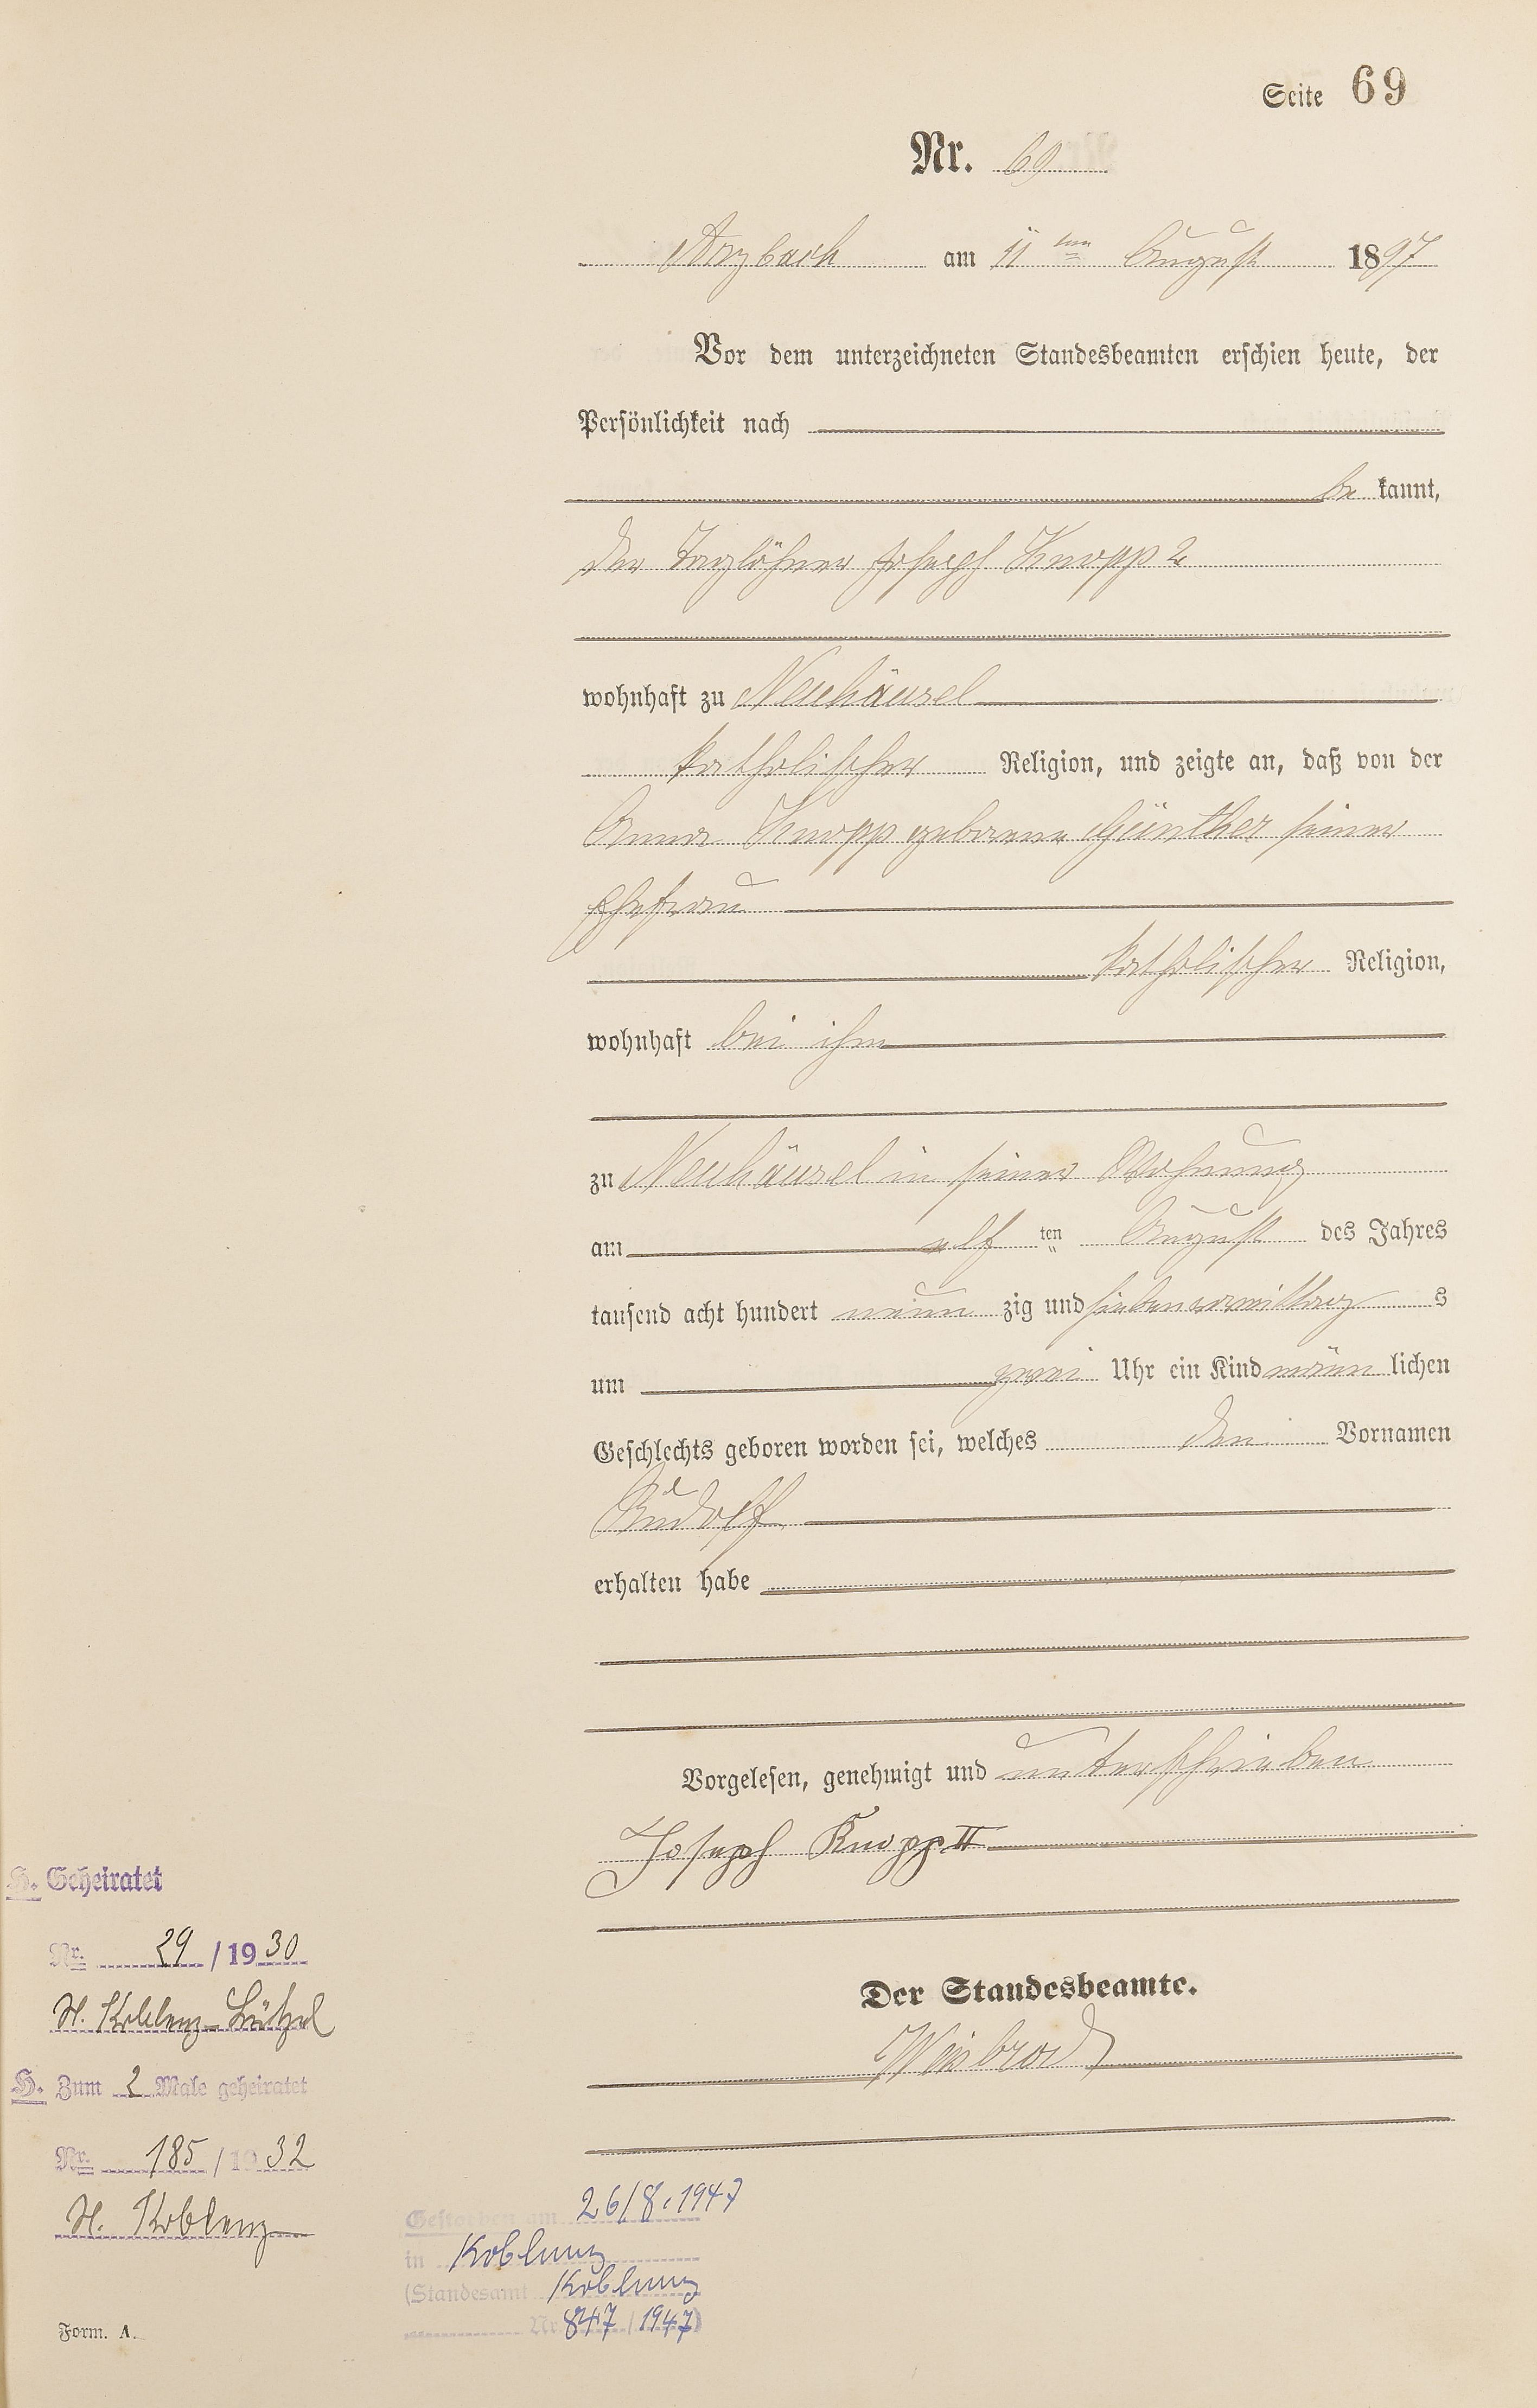 Seite 69
Nr. 69
Arzbach am 11ten August 1897
Vor dem unterzeichneten Standesbeamten erschien heute, der
Persönlichkeit nach
be kannt,
der Taglöhner Joseph Knopp 2
wohnhaft zu Neuhäusel
katholischer Religion, und zeigte an, daß von der
Anna Knopp geborene Günther seiner
Ehefrau
katholischer Religion,
wohnhaft bei ihm
zu Neuhäusel in seiner Wohnung
am elf ten August des Jahres
tausend acht hundert neun zig und sieben vormittag s
um zwei Uhr ein Kind männ lichen
Geschlechts geboren worden sei, welches den Vornamen
Rudolf
erhalten habe
Vorgelesen, genehmigt und unterschrieben
Joseph Knopp II
Der Standesbeamte.
Weisbrod
H. Geheiratet
Nr. 29 / 1930
St. Koblenz-Lützel
H. Zum 2 Male geheiratet
Nr. 185 / 1932
St. Koblenz
Gestorben am 26/8.1947
in Koblenz
(Standesamt Koblenz
Nr. 847 / 1947)
Form. A.